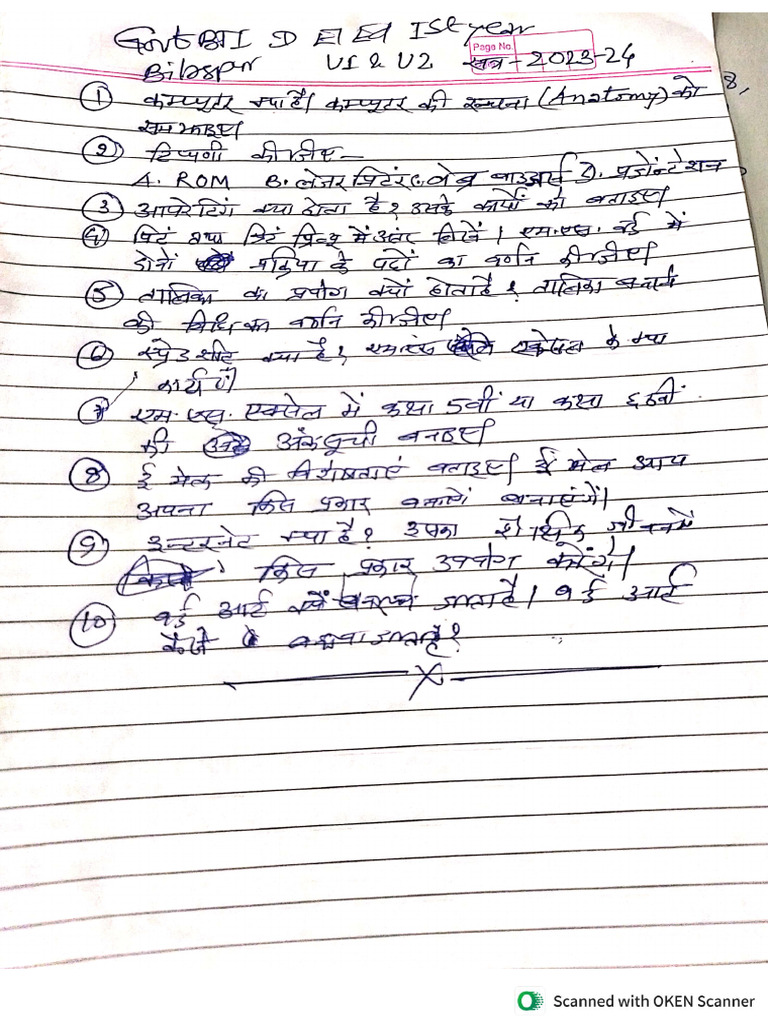 Govt BTI D El Ed Ist year
Page No.
Bilaspur U1 & U2 सत्र - 2023-24
① कम्प्यूटर क्या है। कम्प्यूटर की रचना (Anatomy) को
समझाइए।
② टिप्पणी कीजिए -
A. ROM B. लेजर प्रिंटर C. वेब ब्राउजर्स D. प्रजेन्टेशन
③ आपरेटिंग क्या होता है? उसके कार्यों को बताइए।
④ प्रिंट तथा प्रिंट प्रिव्यू में अंतर लिखें। एम.एस. वर्ड में
दोनों प्रक्रिया के पदों का वर्णन कीजिए।
⑤ तालिका का प्रयोग क्यों होता है? तालिका बनाने
की विधि का वर्णन कीजिए।
⑥ स्प्रेड शीट क्या है? एम.एस. एक्सेल के क्या
कार्य हैं।
⑦ एम.एस. एक्सेल में कक्षा 5वीं या कक्षा 6ठवीं
की अंकसूची बनाइए।
⑧ ई मेल की विशेषताएं बताइए। ई मेल आप
अपना किस प्रकार बनाएंगें।
⑨ इन्टरनेट क्या है? इसका शैक्षिक जीवन में
किस प्रकार उपयोग करेंगे।
⑩ वर्ड आर्ट क्यों बनाया जाता है। वर्ड आर्ट
कैसे बनाया जाता है?
X
Scanned with OKEN Scanner